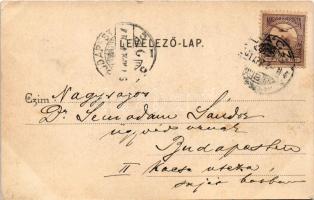 LEVELEZŐ-LAP.
Czim: Nagyságos
Dr Semadam Sándor
ügyvéd úrnak
Budapesten
II Kacsa utcza
saját házban